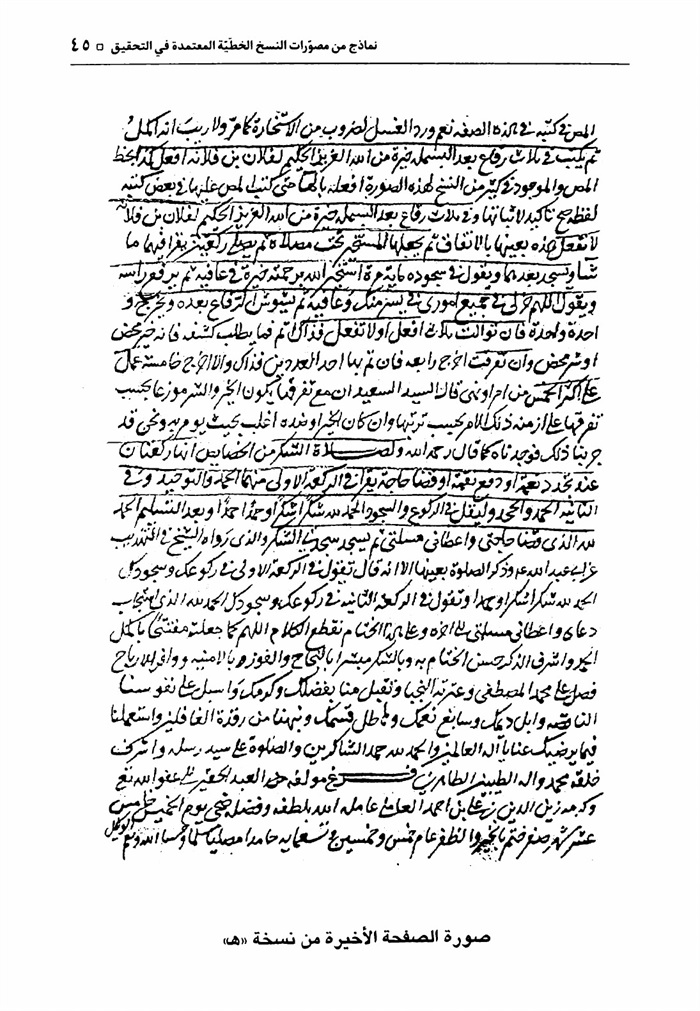 نماذج من مصوّرات النسخ الخطّيّة المعتمدة في التحقيق □ ٤٥
المص في كتبه في هذه الصفه نعم ورد الغسل لضروب من الاستخارة كما مر ولا ريب انه اكمل
ثم يكتب في ثلاث رقاع بعد البسمله خيرة من الله العزيز الحكيم لفلان بن فلانه افعل كذا بخط
المص والموجود في كثير من النسخ لهذه الصورة افعله بالهاء حتى كتب المص عليها في بعض كتبه
لفظه صح تاكيدا لاثباتها وفي ثلاث رقاع بعد البسمله خيرة من الله العزيز الحكيم لفلان بن فلانه
لا تفعل هذه بعينها بالاتفاق ثم يجعلها المستخير تحت مصلاه ثم يصلي ركعتين يقرا فيهما ما
شاء ويسجد بعدهما ويقول في سجوده مايه مرة استخير الله برحمته خيرة في عافيه ثم يرفع راسه
ويقول اللهم خر لي في جميع اموري في يسر منك وعافيه ثم يشوش الرقاع بعده ويخرج و
احدة واحدة فان توالت ثلاث افعل او لا تفعل فذاك اتم فيما يطلب كشفه فانه خير محض
او شر محض وان تفرقت اخرج رابعه فان تم بها احد العددين فذاك والا اخرج خامسة عمل
على اكثر الخمس من امر او نهي قال السيد السعيد ان مع تفرقها يكون الخير والشر موزعا بحسب
تفرقها على ازمنه ذلك الامر بحسب ترتبها وان كان الخير او ضده اغلب بحيث يوم به ونحن قد
جربنا ذلك فوجدناه كما قال رحمه الله ولصلاة الشكر من الخصايص انها ركعتان
عند تجدد نعمة او دفع نقمة او قضا حاجة يقرا في الركعة الاولى منهما الحمد والتوحيد وفي
الثانيه الحمد والجحد وليقل في الركوع والسجود الحمد لله شكرا شكرا وحمدا حمدا وبعد التسليم الحمد
لله الذي قضا حاجتي واعطاني مسلتي ثم يسجد سجدتي الشكر والذي رواه الشيخ في التهذيب
عن ابي عبد الله ع وذكر الصلوة بعينها الا انه قال تقول في الركعة الاولى في ركوعك وسجودك
الحمد لله شكرا شكرا وحمدا وتقول في الركعة الثانيه في ركوعك وسجودك الحمد لله الذي استجاب
دعاي واعطاني مسلتي الى اخره وعلى هذا الختام نقطع الكلام اللهم كما جعلته مفتتحا باكمل
الحمد واشرف الذكر حسن الختام به وبالشكر مبشرا بالنجاح والفوز بالامنيه ووافر الارباح
فصل على محمد المصطفى وعترته النجبا وتقبل منا بفضلك وكرمك واسبل على نفوسنا
الناقصه وابل ديمك وسابغ نعمك وهاطل قسمك ونبهنا من رقدة الغافلين واستعملنا
فيما يرضيك عنا يا اله العالمين والحمد لله حمد الشاكرين والصلوة على سيد رسله واشرف
خلقه محمد واله الطيبين الطاهرين فرغ مولفه العبد الفقير الى عفو الله تع
وكرمه زين الدين بن علي بن احمد العاملي عامله الله بلطفه وفضله ضحى يوم الخميس خامس
عشر شهر صفر ختم بالخير والظفر عام خمس وخمسين وتسعمايه حامدا مصليا مسلما وحسبنا الله ونعم الوكيل
صورة الصفحة الأخيرة من نسخة «هـ»